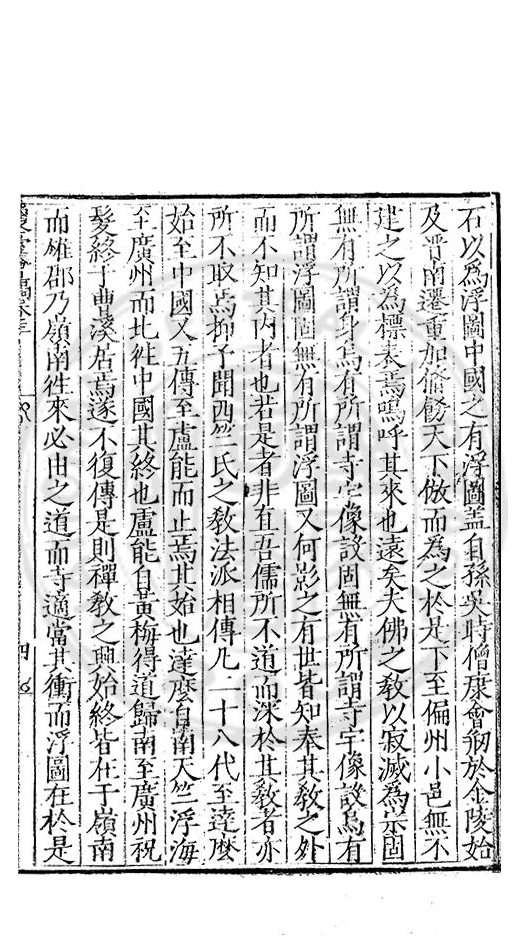 石以為浮圖中國之有浮圖盖自孫吳時僧康會剏於金陵始
及晋南遷重加脩飾天下倣而為之於是下至偏州小邑無不
建之以為標表焉嗚呼其來也遠矣夫佛之教以寂滅為宗固
無有所謂身焉有所謂寺宇像設固無有所謂寺宇像設焉有
所謂浮圖固無有所謂浮圖又何影之有世皆知奉其教之外
而不知其内者也若是者非有吾儒所不道而深於其教者亦
所不取焉抑予聞西竺氏之教法派相傳凡二十八代至達麽
始至中國又五傳至盧能而止焉其始也達麽自南天竺浮海
至廣州而北徃中國其終也盧能自黄梅得道歸南至廣州祝
髮終于曹溪居焉遂不復傳是則禪教之興始終皆在于嶺南
而雄郡乃嶺南徃來必由之道而寺適當其衝而浮圖在於是
四